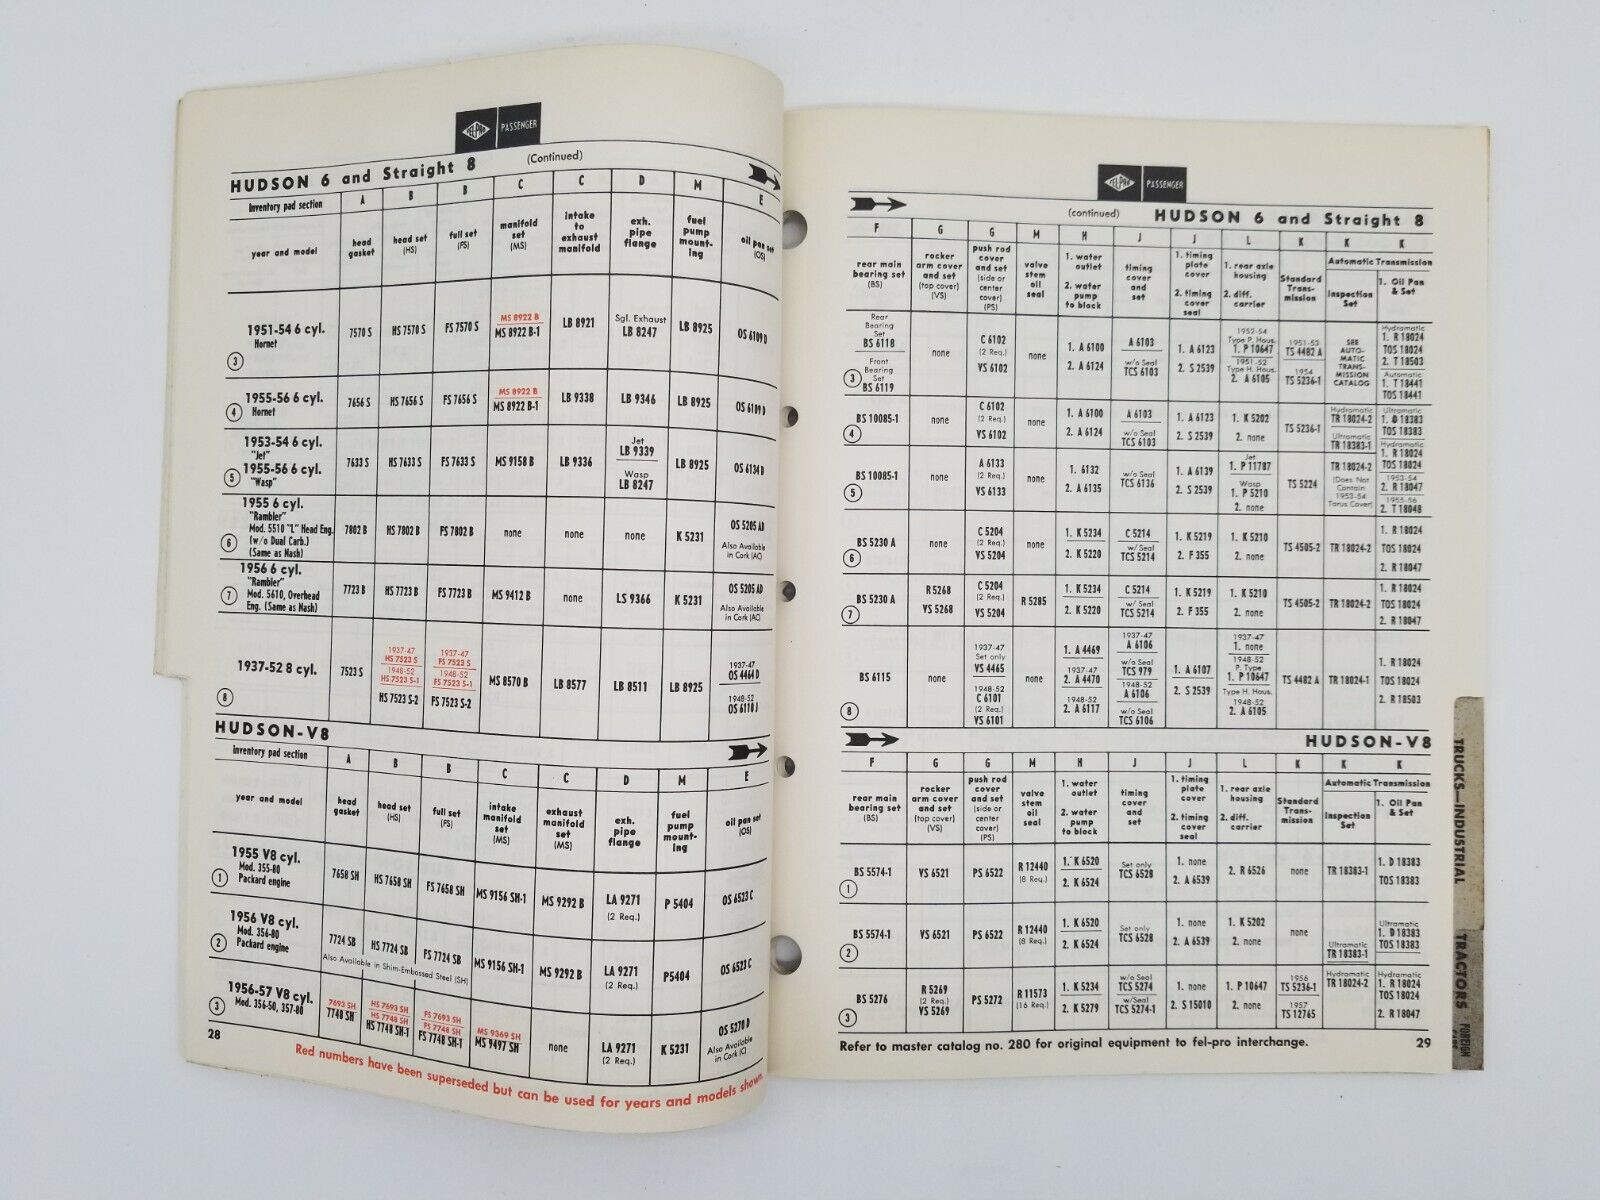 FEL-PRO PASSENGER
HUDSON 6 and Straight 8 (Continued)
Inventory pad section A B B C C D M E
year and model | head gasket | head set (HS) | full set (FS) | manifold set (MS) | intake to exhaust manifold | exh. pipe flange | fuel pump mount-ing | oil pan set (OS)
3 1951-54 6 cyl. Hornet | 7570 S | HS 7570 S | FS 7570 S | MS 8922 B MS 8922 B-1 | LB 8921 | Sgl. Exhaust LB 8247 | LB 8925 | OS 6109 D
4 1955-56 6 cyl. Hornet | 7656 S | HS 7656 S | FS 7656 S | MS 8922 B MS 8922 B-1 | LB 9338 | LB 9346 | LB 8925 | OS 6109 D
5 1953-54 6 cyl. "Jet" 1955-56 6 cyl. "Wasp" | 7633 S | HS 7633 S | FS 7633 S | MS 9158 B | LB 9336 | Jet LB 9339 Wasp LB 8247 | LB 8925 | OS 6134 D
6 1955 6 cyl. "Rambler" Mod. 5510 "L" Head Eng. (w/o Dual Carb.) (Same as Nash) | 7802 B | HS 7802 B | FS 7802 B | none | none | none | K 5231 | OS 5205 AD Also Available in Cork (AC)
7 1956 6 cyl. "Rambler" Mod. 5610, Overhead Eng. (Same as Nash) | 7723 B | HS 7723 B | FS 7723 B | MS 9412 B | none | LS 9366 | K 5231 | OS 5205 AD Also Available in Cork (AC)
8 1937-52 8 cyl. | 7523 S | 1937-47 HS 7523 S 1948-52 HS 7523 S-1 HS 7523 S-2 | 1937-47 FS 7523 S 1948-52 FS 7523 S-1 FS 7523 S-2 | MS 8570 B | LB 8577 | LB 8511 | LB 8925 | 1937-47 OS 4464 D 1948-52 OS 6110 J
HUDSON-V8
Inventory pad section A B B C C D M E
year and model | head gasket | head set (HS) | full set (FS) | intake manifold set (MS) | exhaust manifold set (MS) | exh. pipe flange | fuel pump mount-ing | oil pan set (OS)
1 1955 V8 cyl. Mod. 355-80 Packard engine | 7658 SH | HS 7658 SH | FS 7658 SH | MS 9156 SH-1 | MS 9292 B | LA 9271 (2 Req.) | P 5404 | OS 6523 C
2 1956 V8 cyl. Mod. 356-80 Packard engine | 7724 SB | HS 7724 SB | FS 7724 SB | MS 9156 SH-1 | MS 9292 B | LA 9271 (2 Req.) | P5404 | OS 6523 C
Also Available in Shim-Embossed Steel (SH)
3 1956-57 V8 cyl. Mod. 356-50, 357-80 | 7693 SH 7748 SH | HS 7693 SH HS 7748 SH HS 7748 SH-1 | FS 7693 SH FS 7748 SH FS 7748 SH-1 | MS 9369 SH MS 9497 SH | none | LA 9271 (2 Req.) | K 5231 | OS 5270 D Also Available in Cork (C)
28
Red numbers have been superseded but can be used for years and models shown.
FEL-PRO PASSENGER
(continued) HUDSON 6 and Straight 8
F G G M H J J L K K K
rear main bearing set (BS) | rocker arm cover and set (top cover) (VS) | push rod cover and set (side or center cover) (PS) | valve stem oil seal | 1. water outlet 2. water pump to block | timing cover and set | 1. timing plate cover 2. timing cover seal | 1. rear axle housing 2. diff. carrier | Standard Trans-mission | Automatic Transmission Inspection Set | 1. Oil Pan & Set
3 Rear Bearing Set BS 6118 Front Bearing Set BS 6119 | none | C 6102 (2 Req.) VS 6102 | none | 1. A 6100 2. A 6124 | A 6103 w/o Seal TCS 6103 | 1. A 6123 2. S 2539 | 1952-54 Type P. Hous. 1. P 10647 1951-52 Type H. Hous. 2. A 6105 | 1951-53 TS 4482 A 1954 TS 5236-1 | SEE AUTO-MATIC TRANS-MISSION CATALOG | Hydramatic 1. R 18024 TOS 18024 2. T 18503 Automatic 1. T 18441 TOS 18441
4 BS 10085-1 | none | C 6102 (2 Req.) VS 6102 | none | 1. A 6100 2. A 6124 | A 6103 w/o Seal TCS 6103 | 1. A 6123 2. S 2539 | 1. K 5202 2. none | TS 5236-1 | Hydramatic TR 18024-2 Ultramatic TR 18383-1 | Ultramatic 1. D 18383 TOS 18383
5 BS 10085-1 | none | A 6133 (2 Req.) VS 6133 | none | 1. 6132 2. A 6135 | w/o Seal TCS 6136 | 1. A 6139 2. S 2539 | Jet 1. P 11787 Wasp 1. P 5210 2. none | TS 5224 | TR 18024-2 (Does Not Contain 1953-54 Torus Cover) | Hydramatic 1. R 18024 TOS 18024 1953-54 2. R 18047 1955-56 2. T 18048
6 BS 5230 A | none | C 5204 (2 Req.) VS 5204 | none | 1. K 5234 2. K 5220 | C 5214 w/ Seal TCS 5214 | 1. K 5219 2. F 355 | 1. K 5210 2. none | TS 4505-2 | TR 18024-2 | 1. R 18024 TOS 18024 2. R 18047
7 BS 5230 A | R 5268 VS 5268 | C 5204 (2 Req.) VS 5204 | R 5285 | 1. K 5234 2. K 5220 | C 5214 w/ Seal TCS 5214 | 1. K 5219 2. F 355 | 1. K 5210 2. none | TS 4505-2 | TR 18024-2 | 1. R 18024 TOS 18024 2. R 18047
8 BS 6115 | none | 1937-47 Set only VS 4465 1948-52 C 6101 (2 Req.) VS 6101 | none | 1. A 4469 1937-47 2. A 4470 1948-52 2. A 6117 | 1937-47 A 6106 w/o Seal TCS 979 1948-52 A 6106 w/o Seal TCS 6106 | 1. A 6107 2. S 2539 | 1937-47 1. none 1948-52 P. Type 1. P 10647 Type H. Hous. 1948-52 2. A 6105 | TS 4482 A | TR 18024-1 | 1. R 18024 TOS 18024 2. R 18503
HUDSON-V8
F G G M H J J L K K K
rear main bearing set (BS) | rocker arm cover and set (top cover) (VS) | push rod cover and set (side or center cover) (PS) | valve stem oil seal | 1. water outlet 2. water pump to block | timing cover and set | 1. timing plate cover 2. timing cover seal | 1. rear axle housing 2. diff. carrier | Standard Trans-mission | Automatic Transmission Inspection Set | 1. Oil Pan & Set
1 BS 5574-1 | VS 6521 | PS 6522 | R 12440 (8 Req.) | 1. K 6520 2. K 6524 | Set only TCS 6528 | 1. none 2. A 6539 | 2. R 6526 | none | TR 18383-1 | 1. D 18383 TOS 18383
2 BS 5574-1 | VS 6521 | PS 6522 | R 12440 (8 Req.) | 1. K 6520 2. K 6524 | Set only TCS 6528 | 1. none 2. A 6539 | 1. K 5202 2. none | none | Ultramatic TR 18383-1 | Ultramatic 1. D 18383 TOS 18383
3 BS 5276 | R 5269 (2 Req.) VS 5269 | PS 5272 | R 11573 (16 Req.) | 1. K 5234 2. K 5279 | w/o Seal TCS 5274 w/Seal TCS 5274-1 | 1. none 2. S 15010 | 1. P 10647 2. none | 1956 TS 5236-1 1957 TS 12765 | Hydramatic TR 18024-2 | Hydramatic 1. R 18024 TOS 18024 2. R 18047
Refer to master catalog no. 280 for original equipment to fel-pro interchange. 29
TRUCKS—INDUSTRIAL
TRACTORS
FOREIGN